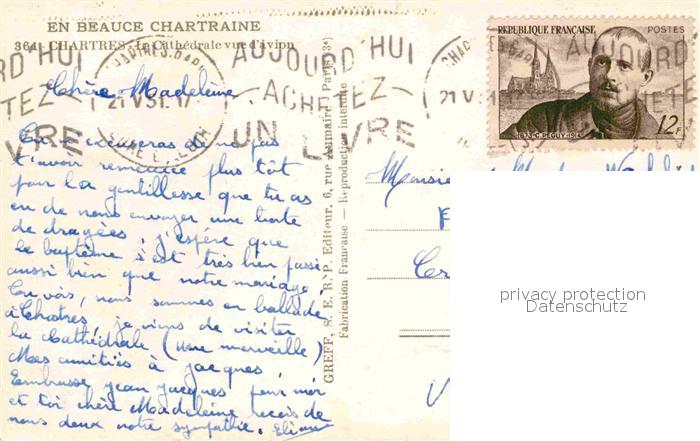 EN BEAUCE CHARTRAINE
364 - CHARTRES. La Cathédrale vue d'avion
AUJOURD'HUI
ACHETEZ
UN LIVRE
CHARTRES-GARE
21 V 51
EURE ET LOIR
REPUBLIQUE FRANÇAISE
POSTES
1873-C. PEGUY-1914
12F
Chère Madeleine
Tu m'excuseras de ne pas
t'avoir remerciée plus tôt
pour la gentillesse que tu as
eu de nous envoyer une boite
de dragées, j'espère que
le baptême s'est très bien passé
aussi bien que notre mariage.
Tu vois, nous sommes en ballade
à Chartres, je viens de visiter
la Cathédrale (une merveille)
Mes amitiés à Jacques
Embrasse Jean Jacques pour moi
et toi chère Madeleine reçois de
nous deux notre sympathie. Eliane
GREFF, S. E. R. P. Editeur, 6, rue Aumaire, Paris (3e)
Fabrication Française — Reproduction interdite
Monsieur
privacy protection
Datenschutz